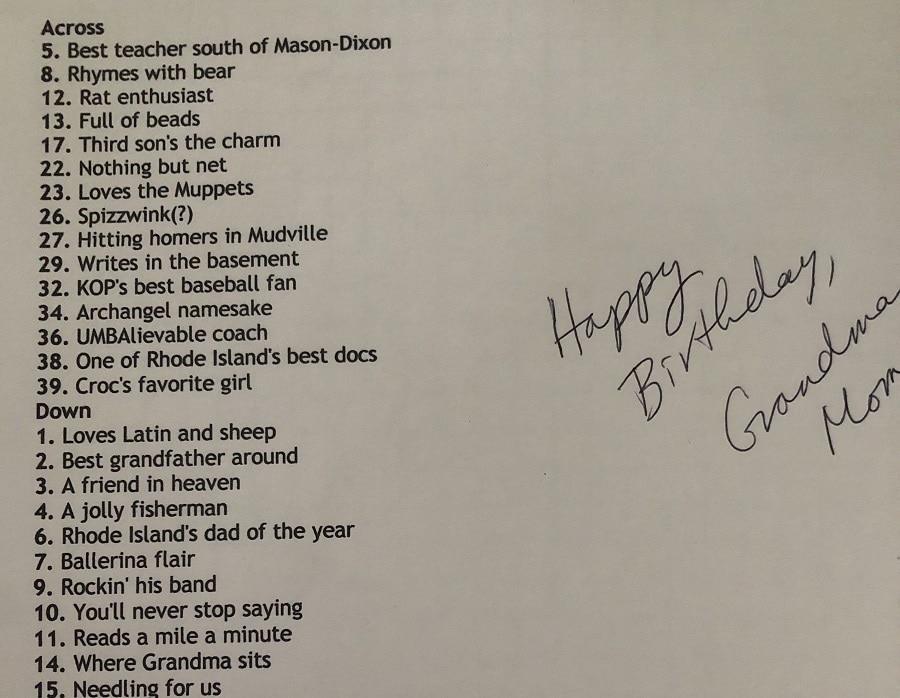 Across
5. Best teacher south of Mason-Dixon
8. Rhymes with bear
12. Rat enthusiast
13. Full of beads
17. Third son's the charm
22. Nothing but net
23. Loves the Muppets
26. Spizzwink(?)
27. Hitting homers in Mudville
29. Writes in the basement
32. KOP's best baseball fan
34. Archangel namesake
36. UMBAlievable coach
38. One of Rhode Island's best docs
39. Croc's favorite girl
Down
1. Loves Latin and sheep
2. Best grandfather around
3. A friend in heaven
4. A jolly fisherman
6. Rhode Island's dad of the year
7. Ballerina flair
9. Rockin' his band
10. You'll never stop saying
11. Reads a mile a minute
14. Where Grandma sits
15. Needling for us
Happy
Birthday,
Grandma
Mom